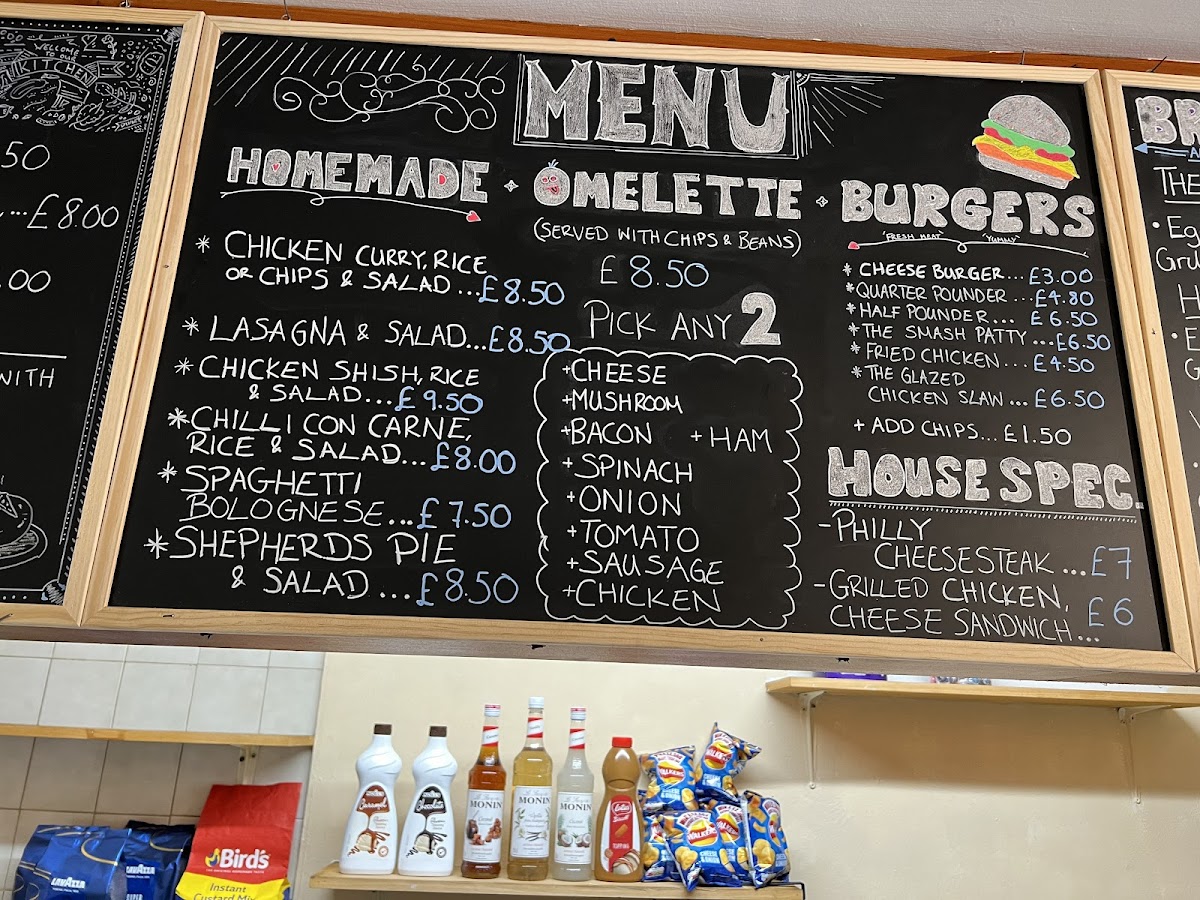 WELCOME
TO OUR
KITCHEN
50
...£8.00
.00
WITH
MENU
HOMEMADE
* CHICKEN CURRY, RICE
OR CHIPS & SALAD ...£8.50
* LASAGNA & SALAD...£8.50
* CHICKEN SHISH, RICE
& SALAD...£9.50
* CHILLI CON CARNE,
RICE & SALAD...£8.00
* SPAGHETTI
BOLOGNESE...£7.50
* SHEPHERDS PIE
& SALAD ...£8.50
OMELETTE
(SERVED WITH CHIPS & BEANS)
£8.50
PICK ANY 2
+CHEESE
+MUSHROOM
+BACON +HAM
+SPINACH
+ONION
+TOMATO
+SAUSAGE
+CHICKEN
BURGERS
"FRESH MEAT" "YUMMY"
* CHEESE BURGER...£3.00
* QUARTER POUNDER ...£4.80
* HALF POUNDER.... £6.50
* THE SMASH PATTY ...£6.50
* FRIED CHICKEN...£4.50
* THE GLAZED
CHICKEN SLAW...£6.50
+ ADD CHIPS...£1.50
HOUSE SPEC.
-PHILLY
CHEESESTEAK ...£7
-GRILLED CHICKEN,
CHEESE SANDWICH... £6
BR
THE
Gr
LAVAZZA
Bird's
Instant
Custard Mix
Caramel
Chocolate
MONIN
MONIN
MONIN
Lotus
WALKERS
WALKERS
WALKERS
CHEESE
& ONION